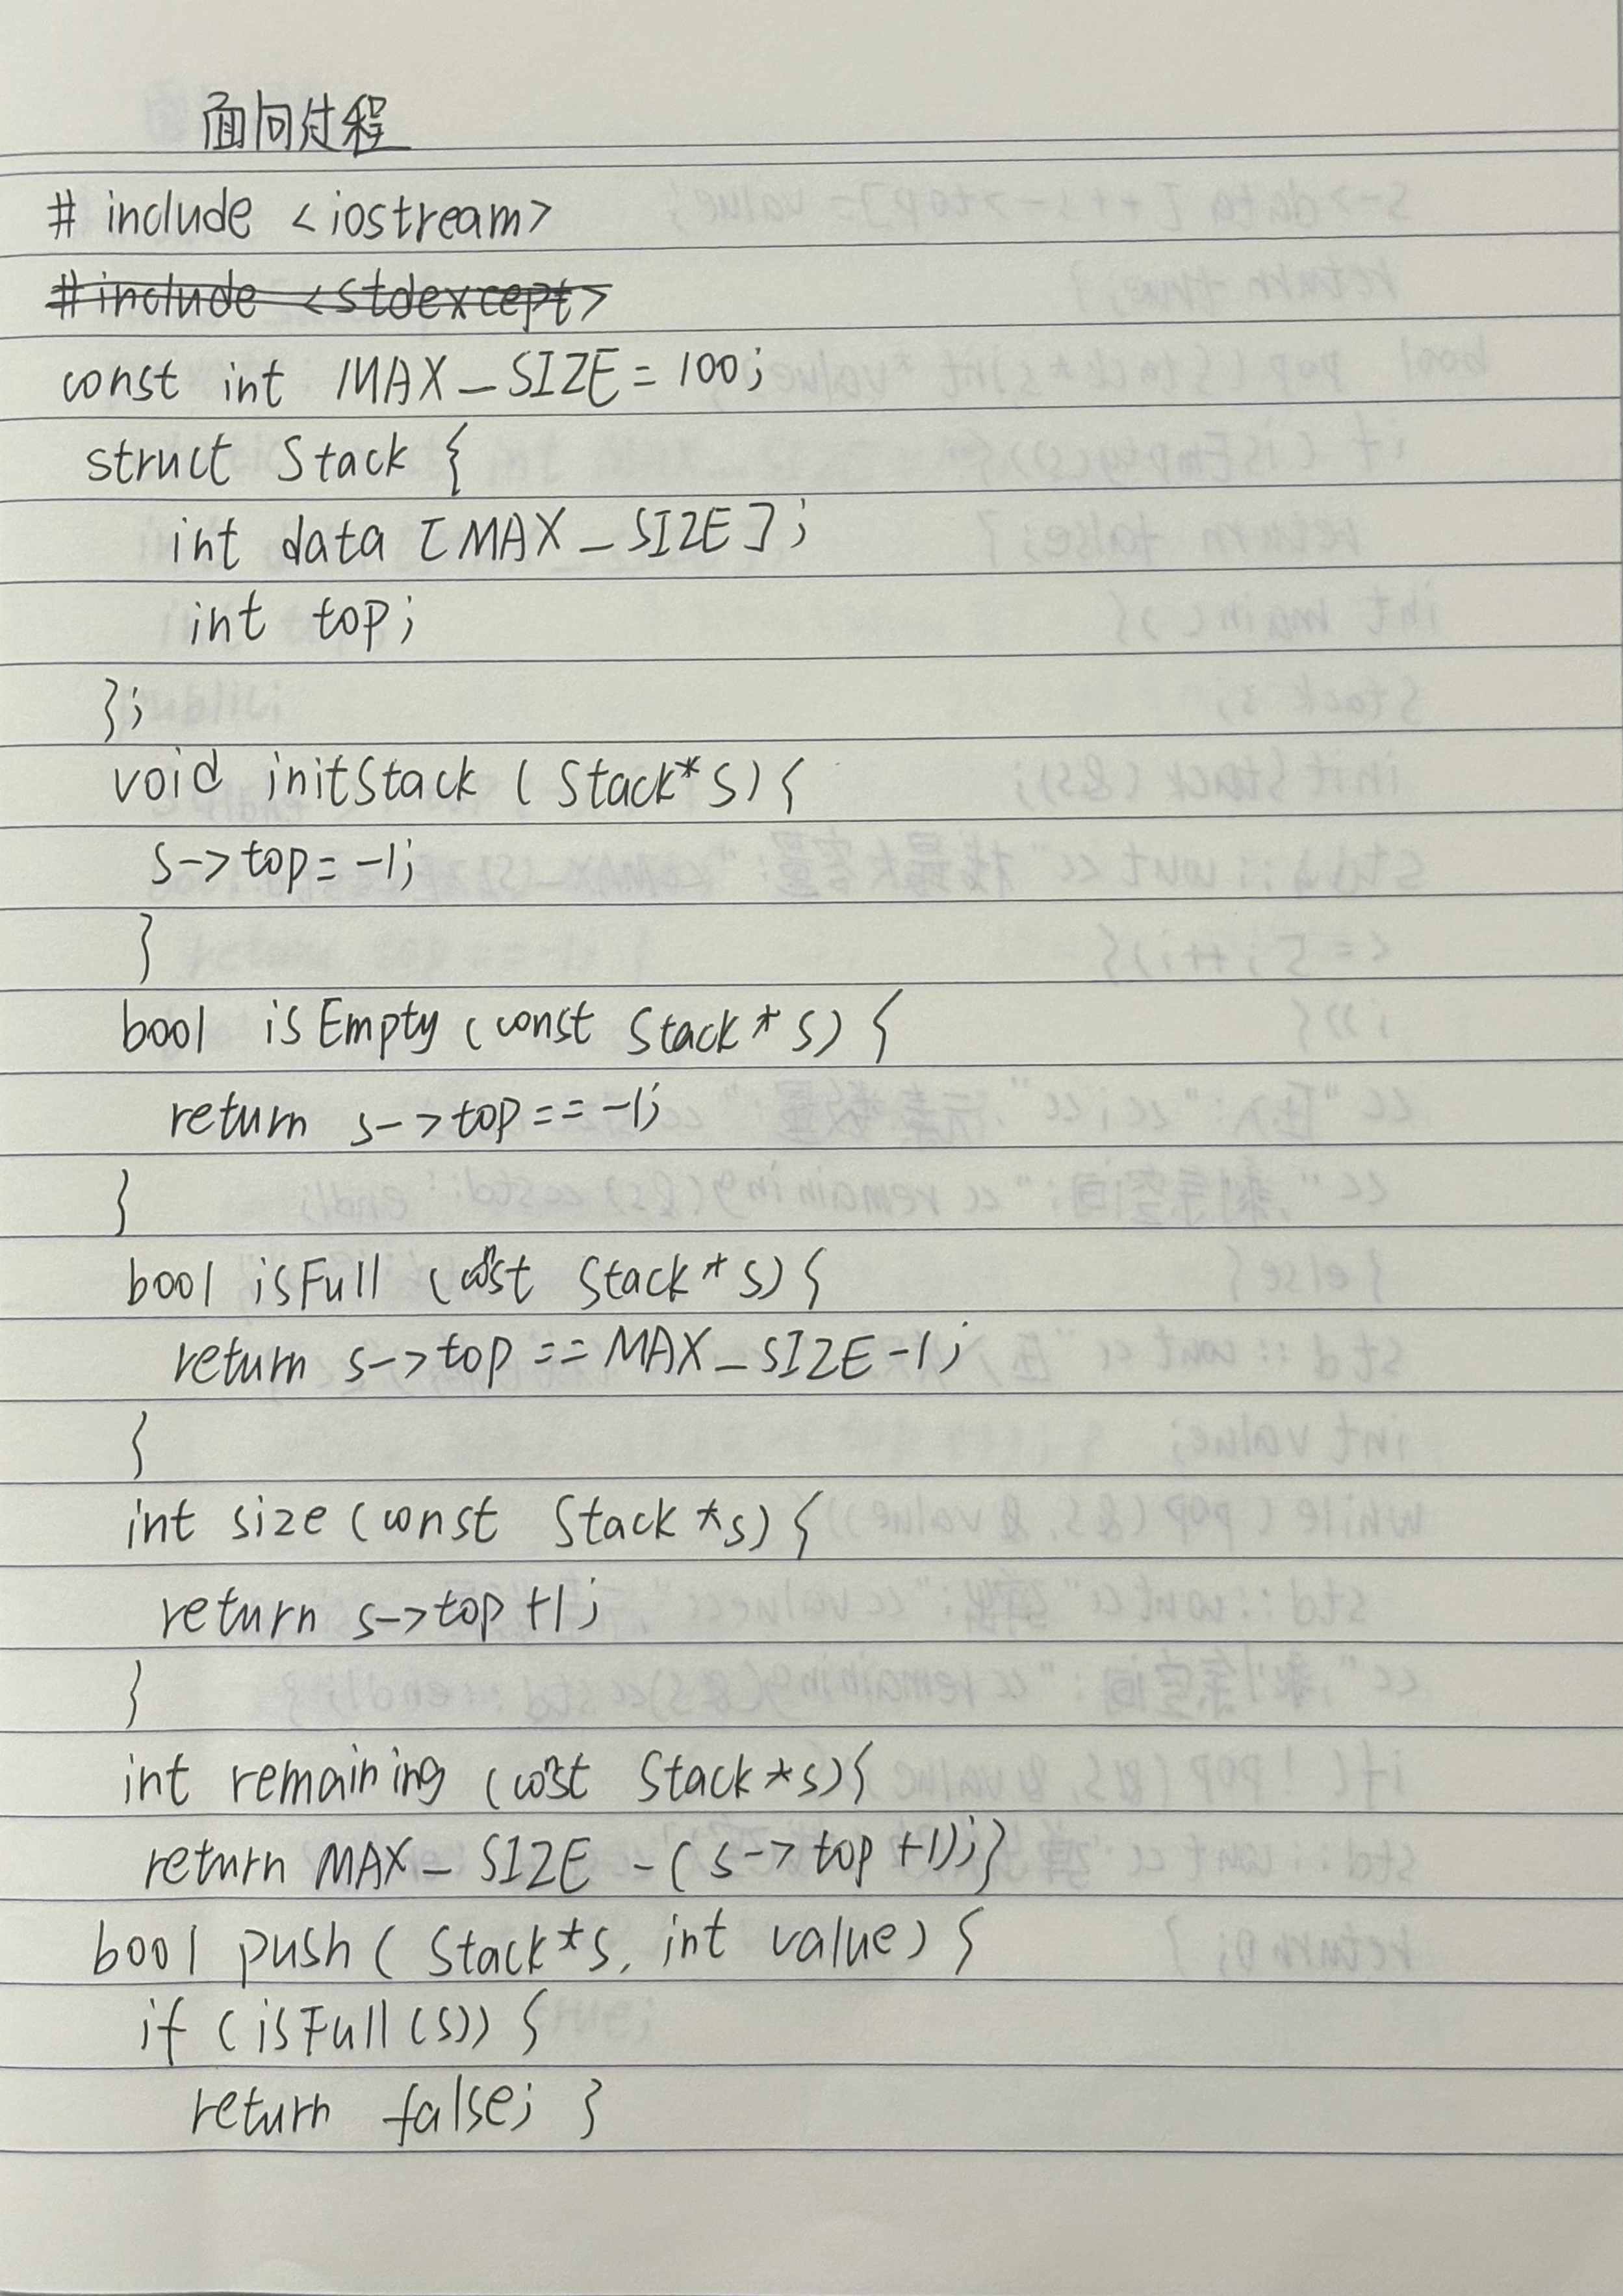 面向过程
# include <iostream>
#include <stdexcept>
const int MAX_SIZE = 100;
struct Stack {
int data [MAX_SIZE];
int top;
};
void initStack (Stack*s){
s->top=-1;
}
bool isEmpty (const Stack* s) {
return s->top==-1;
}
bool isFull (const Stack* s){
return s->top == MAX_SIZE-1;
}
int size (const Stack *s) {
return s->top +1;
}
int remaining (const Stack *s){
return MAX_SIZE -(s->top +1);}
bool push( Stack*s, int value) {
if (isFull(s)) {
return false; }